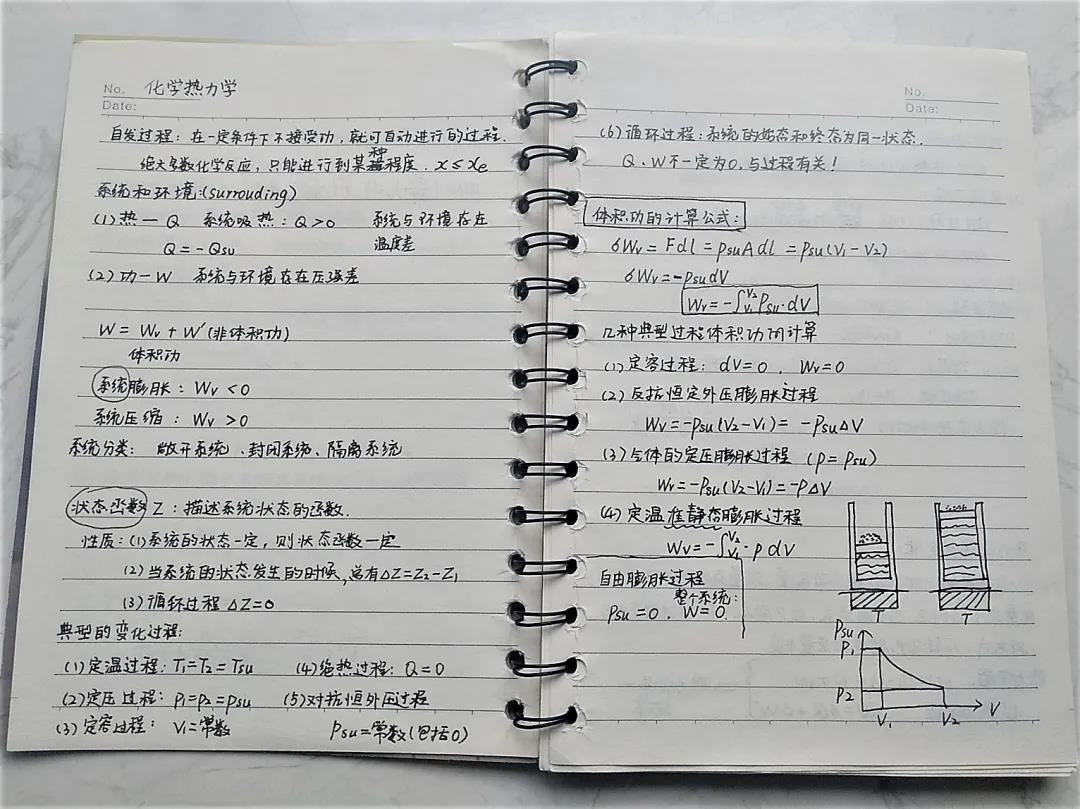 No. 化学热力学
Date:
自发过程：在一定条件下不接受功，就可自动进行的过程.
绝大多数化学反应，只能进行到某种程度. x≤xe
系统和环境:(surrouding)
(1)热—Q 系统吸热：Q>0 系统与环境存在
Q=-Qsu 温度差
(2)功—W 系统与环境存在压强差
W = Wv + W′(非体积功)
体积功
系统膨胀：Wv <0
系统压缩：Wv >0
系统分类： 敞开系统、封闭系统、隔离系统
状态函数 Z：描述系统状态的函数.
性质：(1)系统的状态一定，则状态函数一定
(2)当系统的状态发生的时候，总有ΔZ=Z2-Z1
(3)循环过程 ΔZ=0
典型的变化过程:
(1)定温过程：T1=T2=Tsu (4)绝热过程：Q=0
(2)定压过程：p1=p2=psu (5)对抗恒外压过程
(3)定容过程： V1=常数 Psu=常数(包括0)
No.
Date:
(6)循环过程：系统的始态和终态为同一状态.
Q、W不一定为0，与过程有关！
体积功的计算公式：
δWv = Fdl = psuAdl = psu(V1-V2)
δWv=-psudV
Wv=-∫V1V2 Psu·dV
几种典型过程体积功的计算
(1)定容过程：dV=0，Wv=0
(2)反抗恒定外压膨胀过程
Wv=-psu(V2-V1)= -psuΔV
(3)气体的定压膨胀过程 (p=psu)
Wv=-psu(V2-V1)=-pΔV
(4)定温准静态膨胀过程
Wv=-∫V1V2·p dV
自由膨胀过程
整个系统：
Psu=0，W=0.
T T
Psu
P1
P2
V1 V2 V